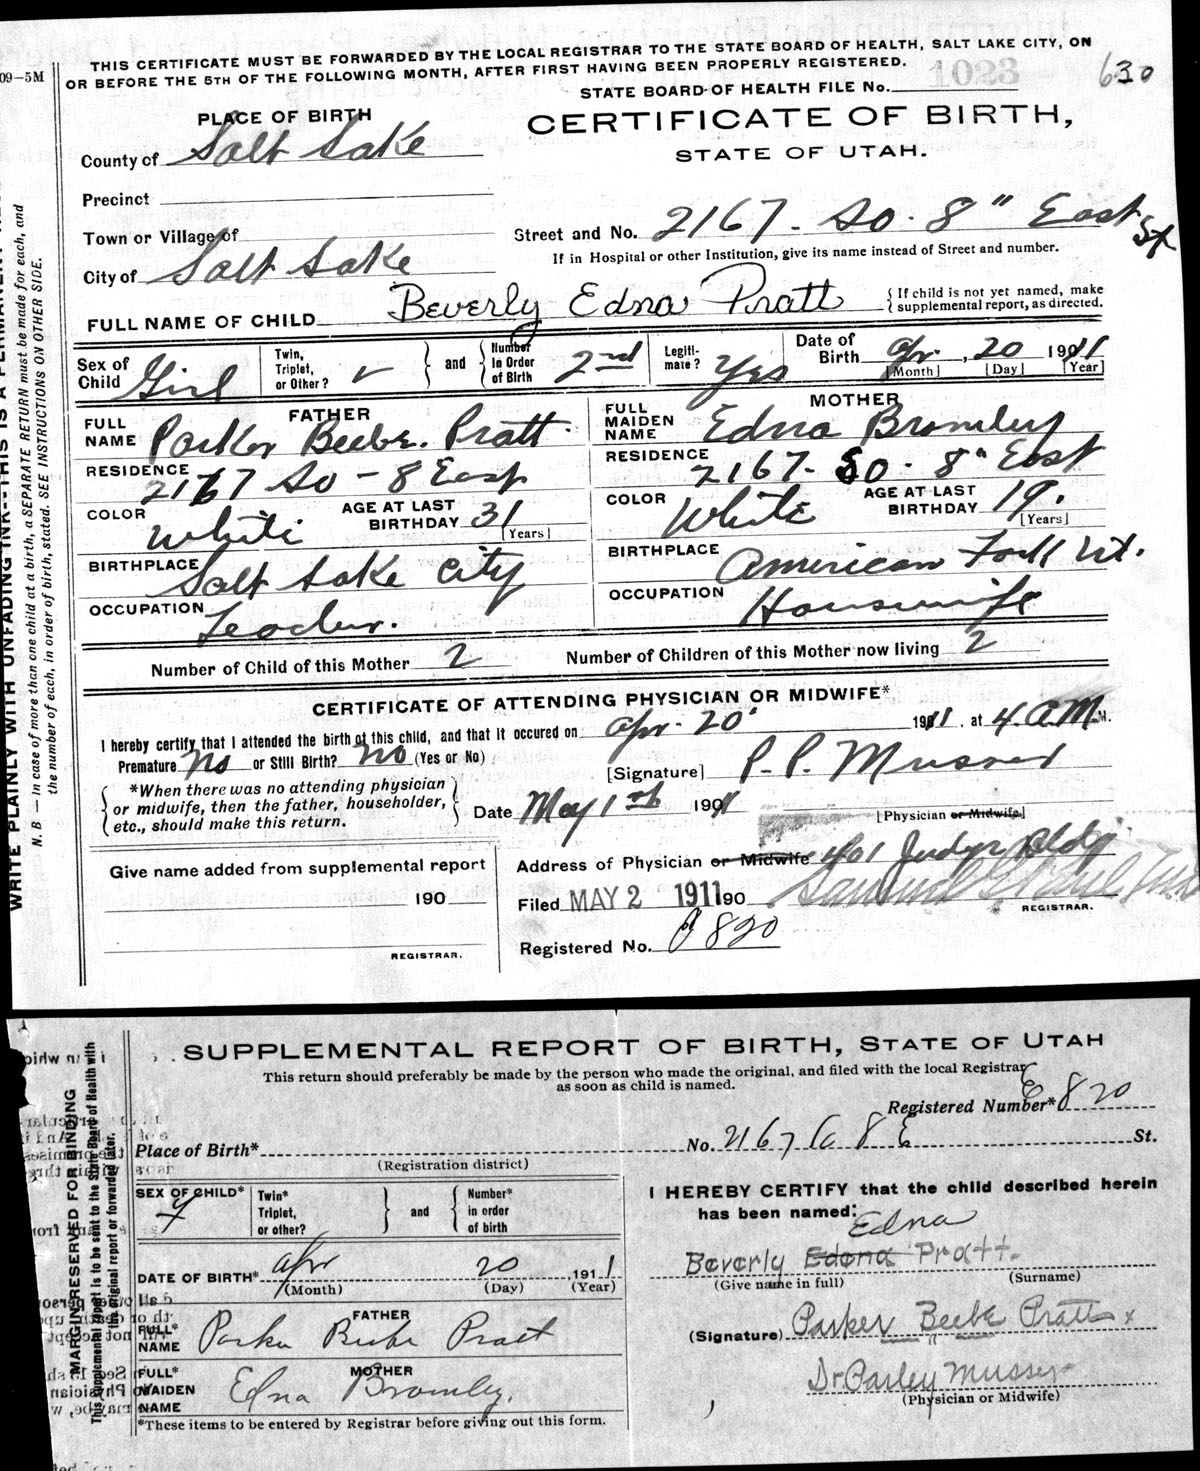 THIS CERTIFICATE MUST BE FORWARDED BY THE LOCAL REGISTRAR TO THE STATE BOARD OF HEALTH, SALT LAKE CITY, ON
OR BEFORE THE 5TH OF THE FOLLOWING MONTH, AFTER FIRST HAVING BEEN PROPERLY REGISTERED.
09–5M
1023
630
STATE BOARD OF HEALTH FILE No.
PLACE OF BIRTH
CERTIFICATE OF BIRTH,
STATE OF UTAH.
County of Salt Lake
Precinct
Town or Village of
Street and No. 2167 - So. 8" East St
If in Hospital or other Institution, give its name instead of Street and number.
City of Salt Lake
FULL NAME OF CHILD Beverly Edna Pratt { If child is not yet named, make supplemental report, as directed.
Sex of Child Girl
Twin, Triplet, or Other? } and { Number In Order of Birth 2nd
Legitimate? Yes
Date of Birth Apr. , 20 1911
[Month] [Day] [Year]
FATHER
FULL NAME Parker Beebe. Pratt
MOTHER
FULL MAIDEN NAME Edna Bromley
RESIDENCE 2167 So - 8 East
RESIDENCE 2167 - So. 8" East
COLOR White AGE AT LAST BIRTHDAY 31 [Years]
COLOR White AGE AT LAST BIRTHDAY 19. [Years]
BIRTHPLACE Salt Lake City
BIRTHPLACE American Fork Ut.
OCCUPATION Teacher.
OCCUPATION Housewife
Number of Child of this Mother 2
Number of Children of this Mother now living 2
CERTIFICATE OF ATTENDING PHYSICIAN OR MIDWIFE*
I hereby certify that I attended the birth of this child, and that it occured on Apr. 20 1911. at 4. A.M. M.
Premature No or Still Birth? No (Yes or No)
[Signature] P. P. Musser
*When there was no attending physician or midwife, then the father, householder, etc., should make this return.
Date May 1st 1911
[Physician or Midwife]
Give name added from supplemental report
190
REGISTRAR.
Address of Physician or Midwife 401 Judge Bldg
Filed MAY 2 1911 190
REGISTRAR.
Registered No. 820
WRITE PLAINLY WITH UNFADING INK--THIS IS A PERMANENT
N. B — In case of more than one child at a birth, a SEPARATE RETURN must be made for each, and
the number of each, in order of birth, stated. SEE INSTRUCTIONS ON OTHER SIDE.
SUPPLEMENTAL REPORT OF BIRTH, STATE OF UTAH
This return should preferably be made by the person who made the original, and filed with the local Registrar
as soon as child is named.
Registered Number* 820
Place of Birth* No. 2167 So 8 E St.
(Registration district)
SEX OF CHILD* F
Twin* Triplet, or other? } and { Number* in order of birth
I HEREBY CERTIFY that the child described herein
has been named:
Edna
Beverly Edena Pratt.
(Give name in full) (Surname)
DATE OF BIRTH* Apr 20 1911
(Month) (Day) (Year)
FATHER
FULL* NAME Parker Beebe Pratt
(Signature) Parker Beebe Pratt x
MOTHER
FULL* MAIDEN NAME Edna Bromley.
Dr Parley Musser
(Physician or Midwife)
*These items to be entered by Registrar before giving out this form.
MARGIN RESERVED FOR BINDING
This Supplemental report is to be sent to the State Board of Health with
the original report or forwarded later.